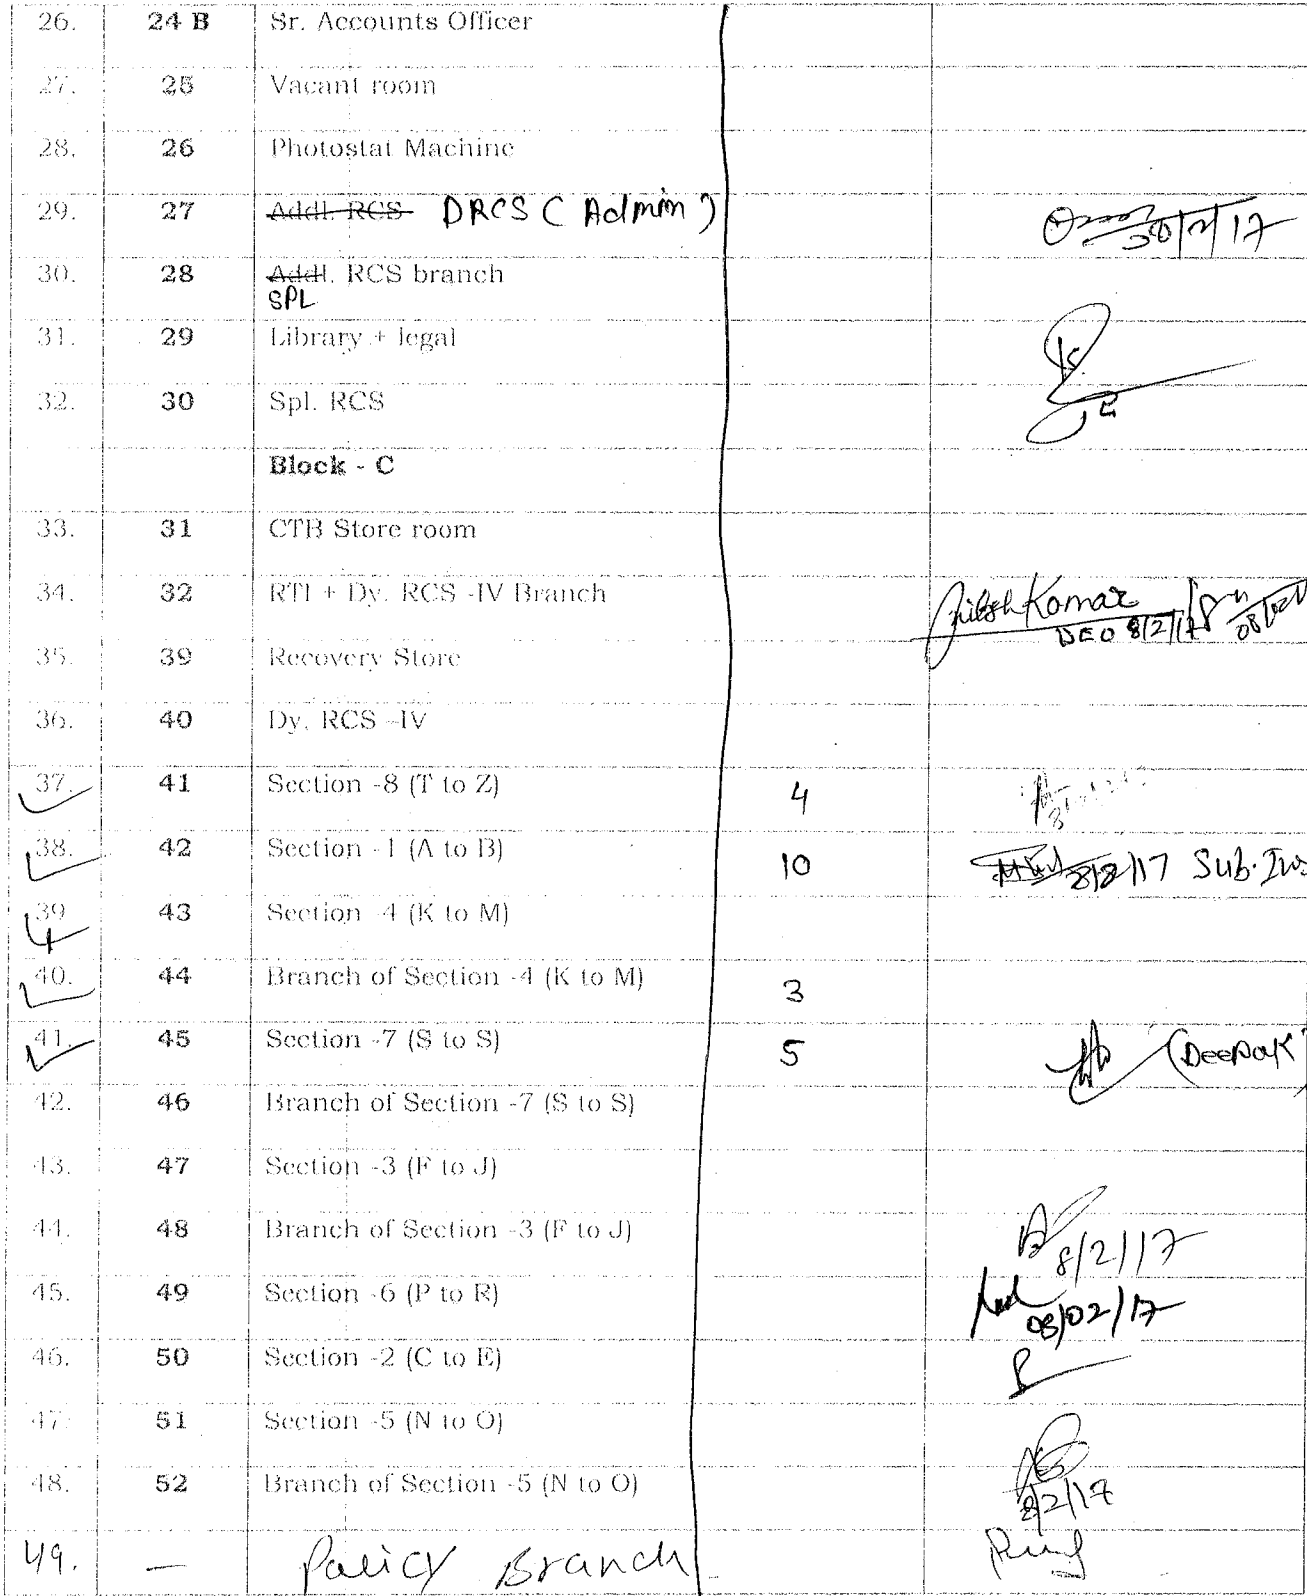 26. 24 B Sr. Accounts Officer
27. 25 Vacant room
28. 26 Photostat Machine
29. 27 Addl. RCS DRCS ( Admin )
30. 28 Addl. RCS branch
SPL
31. 29 Library + legal
32. 30 Spl. RCS
Block - C
33. 31 CTB Store room
34. 32 RTI + Dy. RCS -IV Branch Kumar
DEO 8/2/17
35. 39 Recovery Store
36. 40 Dy. RCS -IV
37. 41 Section -8 (T to Z) 4
38. 42 Section -1 (A to B) 10 8/2/17 Sub. Ins
39 43 Section -4 (K to M)
40. 44 Branch of Section -4 (K to M) 3
41. 45 Section -7 (S to S) 5 (Deepak)
42. 46 Branch of Section -7 (S to S)
43. 47 Section -3 (F to J)
44. 48 Branch of Section -3 (F to J) 8/2/17
45. 49 Section -6 (P to R) 08/02/17
46. 50 Section -2 (C to E)
47. 51 Section -5 (N to O)
48. 52 Branch of Section -5 (N to O) 8/2/17
49. — Policy Branch